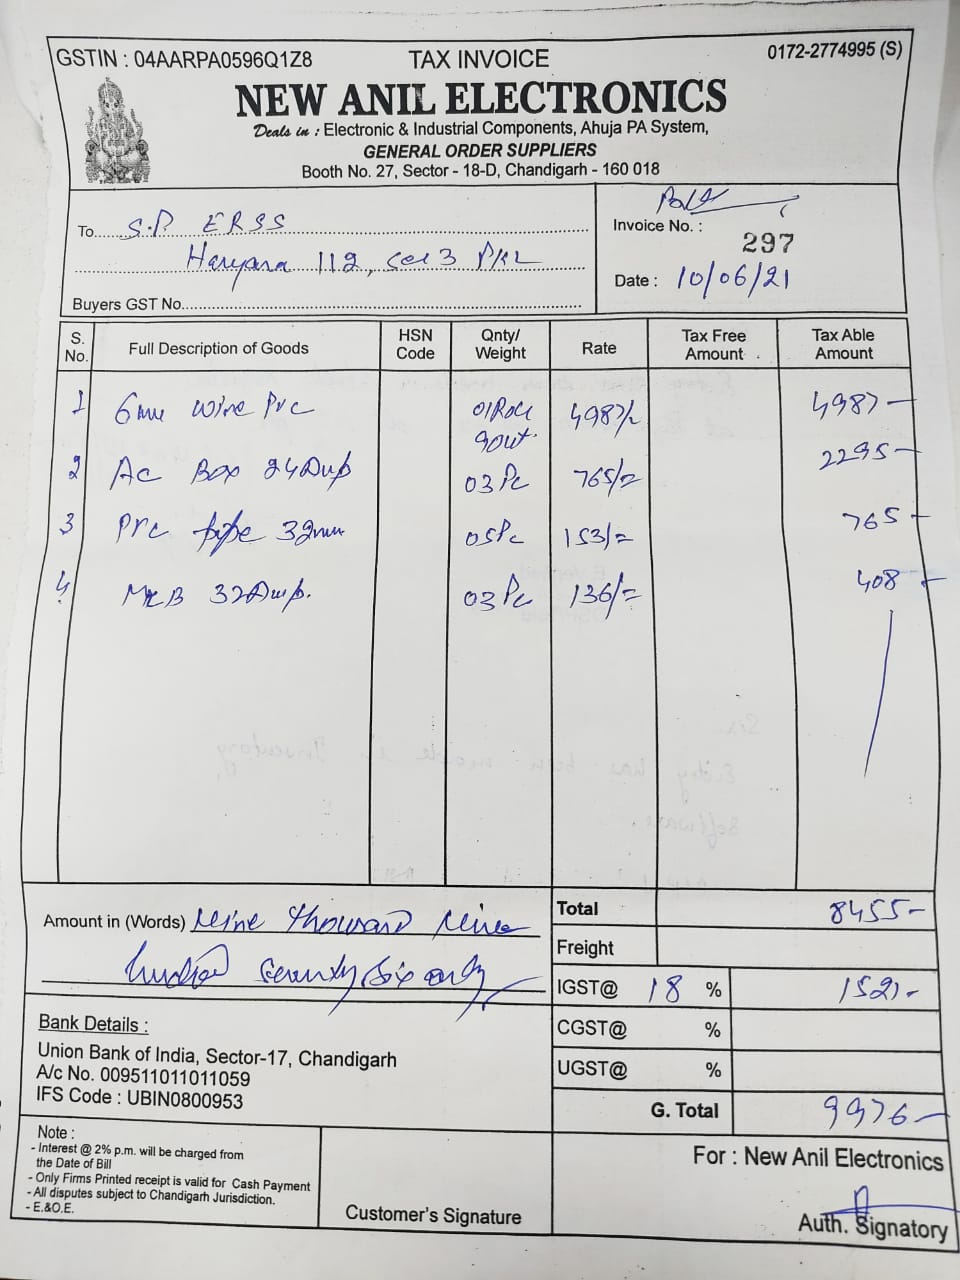 GSTIN : 04AARPA0596Q1Z8 TAX INVOICE 0172-2774995 (S)
NEW ANIL ELECTRONICS
Deals in : Electronic & Industrial Components, Ahuja PA System,
GENERAL ORDER SUPPLIERS
Booth No. 27, Sector - 18-D, Chandigarh - 160 018
To S.P ERSS
Haryana 112, Sec 3 PKL
Buyers GST No.
Invoice No. : 297
Date : 10/06/21
S. No. Full Description of Goods HSN Code Qnty/ Weight Rate Tax Free Amount Tax Able Amount
1 6mm wire PVC 01 Roll 90mt. 4987/- 4987-
2 AC Box 240mp 03 Pc 765/= 2295-
3 PVC pipe 32mm 05Pc 153/= 765-
4 MCB 32Amp. 03 Pc 136/= 408-
Total 8455-
Amount in (Words) Nine thousand Nine
hundred Seventy Six only
Freight
IGST@ 18 % 1521-
CGST@ %
UGST@ %
G. Total 9976-
Bank Details :
Union Bank of India, Sector-17, Chandigarh
A/c No. 009511011011059
IFS Code : UBIN0800953
Note :
- Interest @ 2% p.m. will be charged from
the Date of Bill
- Only Firms Printed receipt is valid for Cash Payment
- All disputes subject to Chandigarh Jurisdiction.
- E.&O.E.
Customer's Signature
For : New Anil Electronics
Auth. Signatory